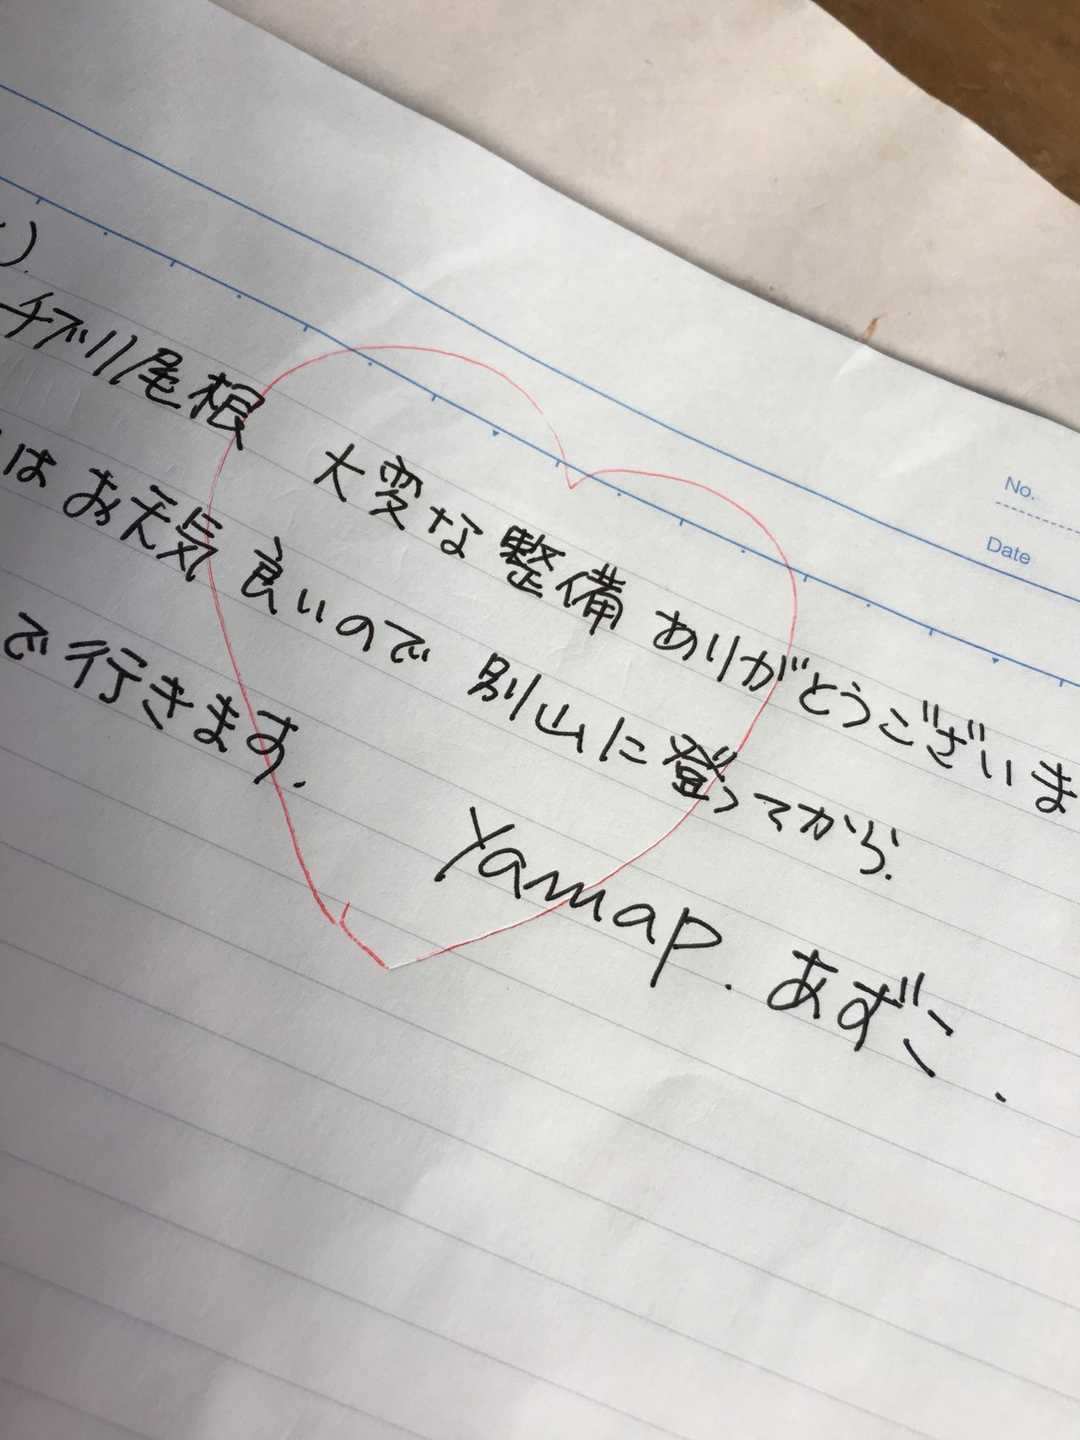 チブリ尾根 大変な整備 ありがとうございま
はお天気良いので 別山に登ってから.
で行きます.
Yamap. あずこ.
No.
Date